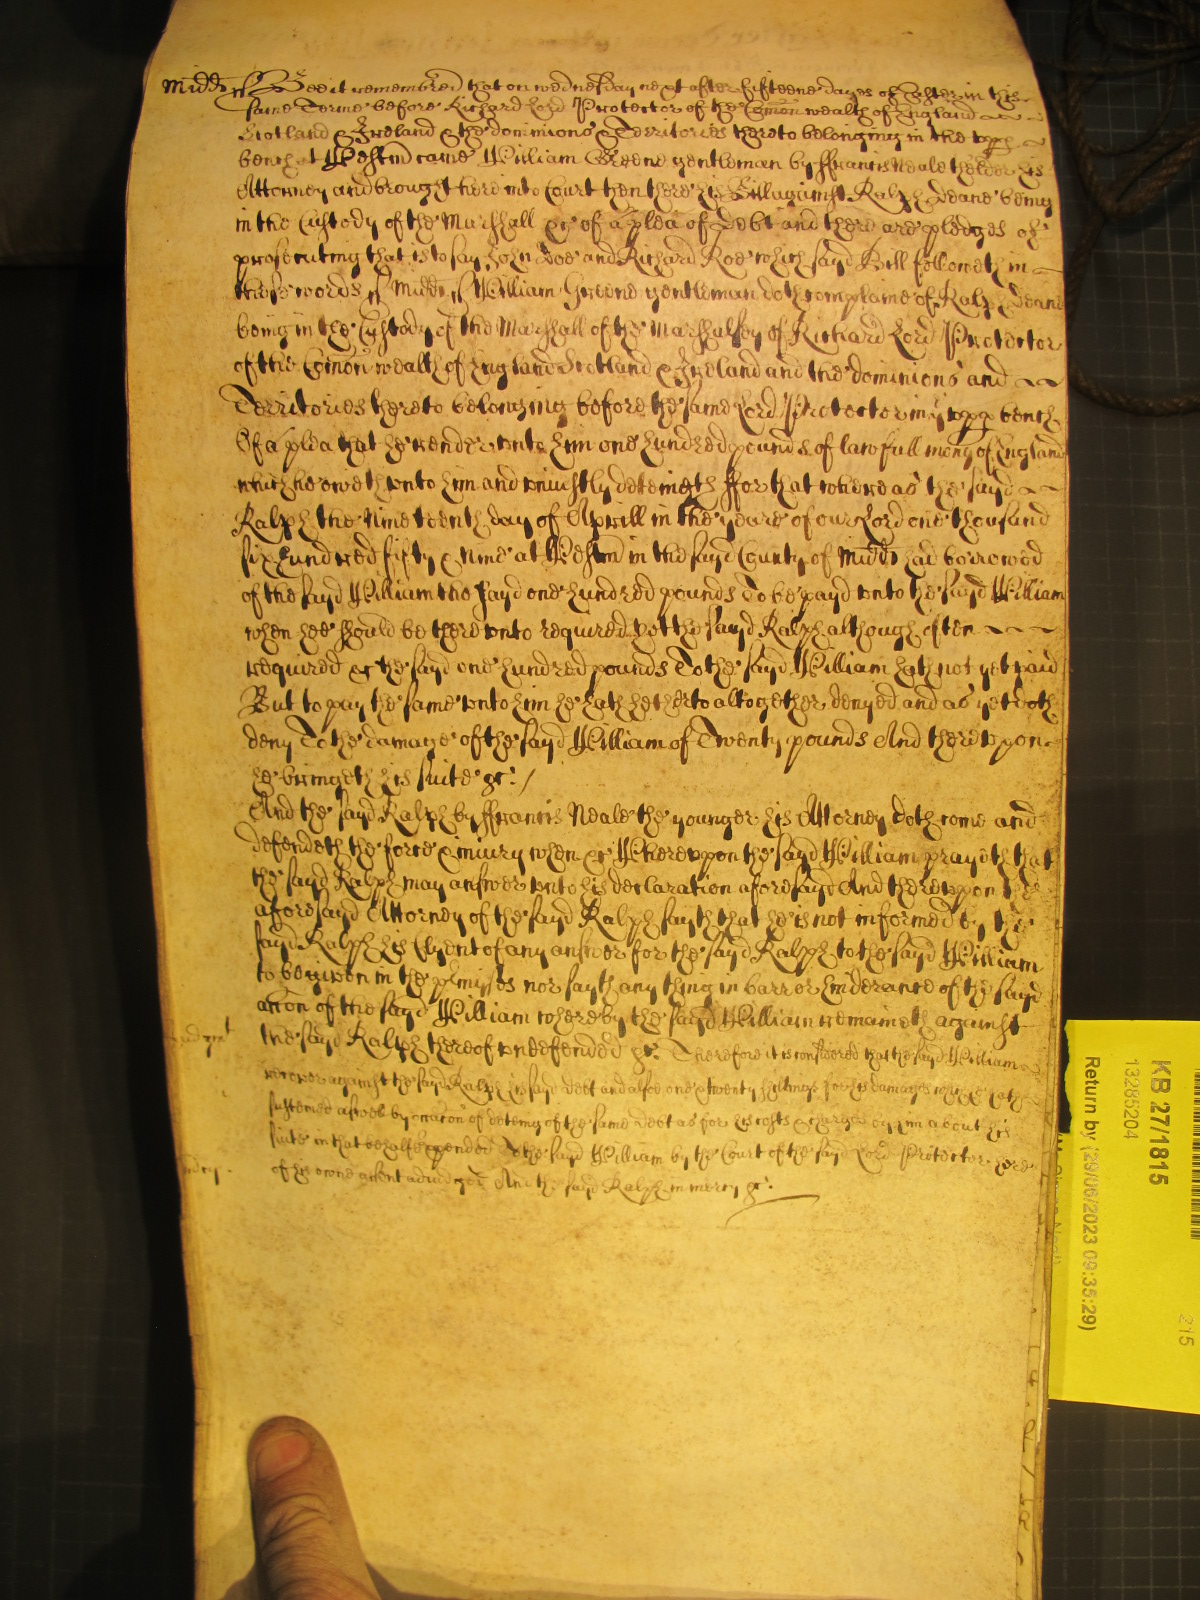 Midd ss Bee it remembred that on wednesday next after fifteene dayes of Easter in this
same Terme before Richard Lord Protector of the Comon wealth of England
Scotland & Ireland & the dominions & Territories thereto belonging in the upp
bench at Westm came William Greene gentleman by ffrancis Neale the elder his
Attorney and brought here into Court then there his Bill against Ralph Deane being
in the Custody of the Marshall &c of a plea of Debt and there are pledges of
prosecuting that is to say John Doe and Richard Roe which sayd Bill followeth in
these words ss Midd ss William Greene gentleman doth complaine of Ralph Deane
being in the Custody of the Marshall of the Marshalsey of Richard Lord Protector
of the Comon wealth of England Scotland & Ireland and the dominions and
Territories thereto belonging before the same Lord Protector in ye upp bench
Of a plea that he render unto him one hundred pounds of lawfull mony of England
which he oweth unto him and uniustly deteineth ffor that whereas the sayd
Ralph the Nineteenth day of Aprill in the yeare of our Lord one thousand
six hundred fifty & nine at Westm in the sayd County of Midd had borrowed
of the sayd William the sayd one hundred pounds To be payd unto the sayd William
when hee should be thereunto required yet the sayd Ralph although often
required &c the sayd one hundred pounds To the sayd William hath not yet paid
But to pay the same unto him he hath hetherto altogether denyed and as yet doth
deny To the damage of the sayd William of Twenty pounds And thereupon
he bringeth his suite &c /
And the sayd Ralph by ffrancis Neale the younger his Attorney doth come and
defendeth the force & iniury when &c Whereupon the sayd William prayeth that
the sayd Ralph may answer unto his declaration aforesayd And thereupon the
aforesayd Attorney of the sayd Ralph sayth that he is not informed by the
sayd Ralph his Clyent of any answer for the sayd Ralph to the sayd William
to be given in the pmisses nor sayth any thing in barr or hinderance of the sayd
accon of the sayd William whereby the sayd William remaineth against
the sayd Ralph thereof undefended &c Therefore it is considered that the sayd William
recover against the sayd Ralph his sayd debt and alsoe one & twenty shillings for his damages which he hath
susteined aswell by occacon of deteing of the same debt as for his costs & charges by him about his
suite in that behalfe expended To the sayd William by the Court of the sayd Lord Protector here
of his owne assent adiudged And the sayd Ralph in mercy &c
KB 27/1815
13285204
Return by (29/06/2023 09:35:29)
215